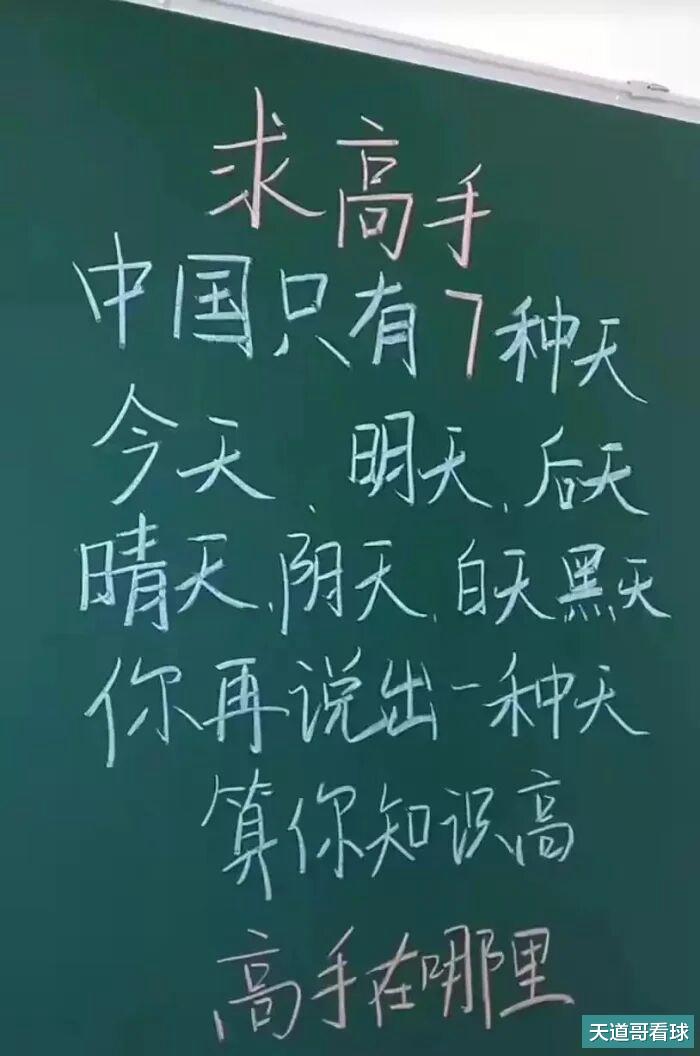 求高手
中国只有7种天
今天、明天、后天
晴天、阴天、白天黑天
你再说出一种天
算你知识高
高手在哪里
天道哥看球